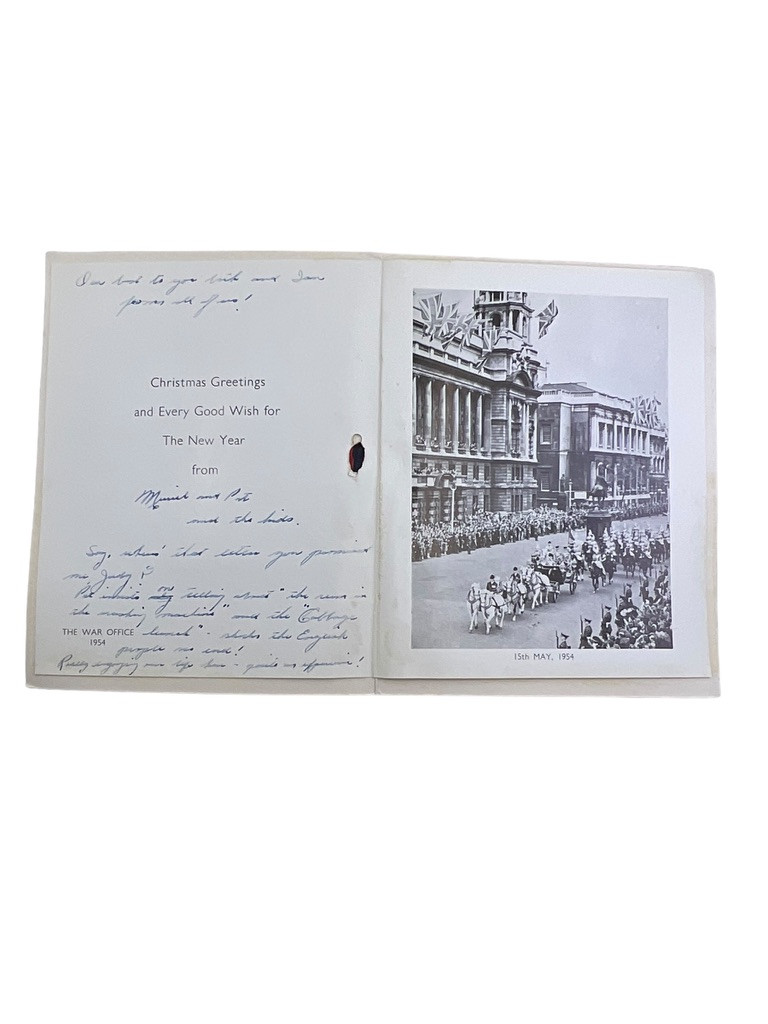 Our best to you both and
from all of us!
Christmas Greetings
and Every Good Wish for
The New Year
from
and Pat
and the kids.
Say, where's that letter you promised
me Judy?
Pat insists on telling about "the runs in
the washing machine" and the "Cabbage
THE WAR OFFICE
1954
" - the English
people no end!
Really enjoying our life here - !
15th MAY, 1954